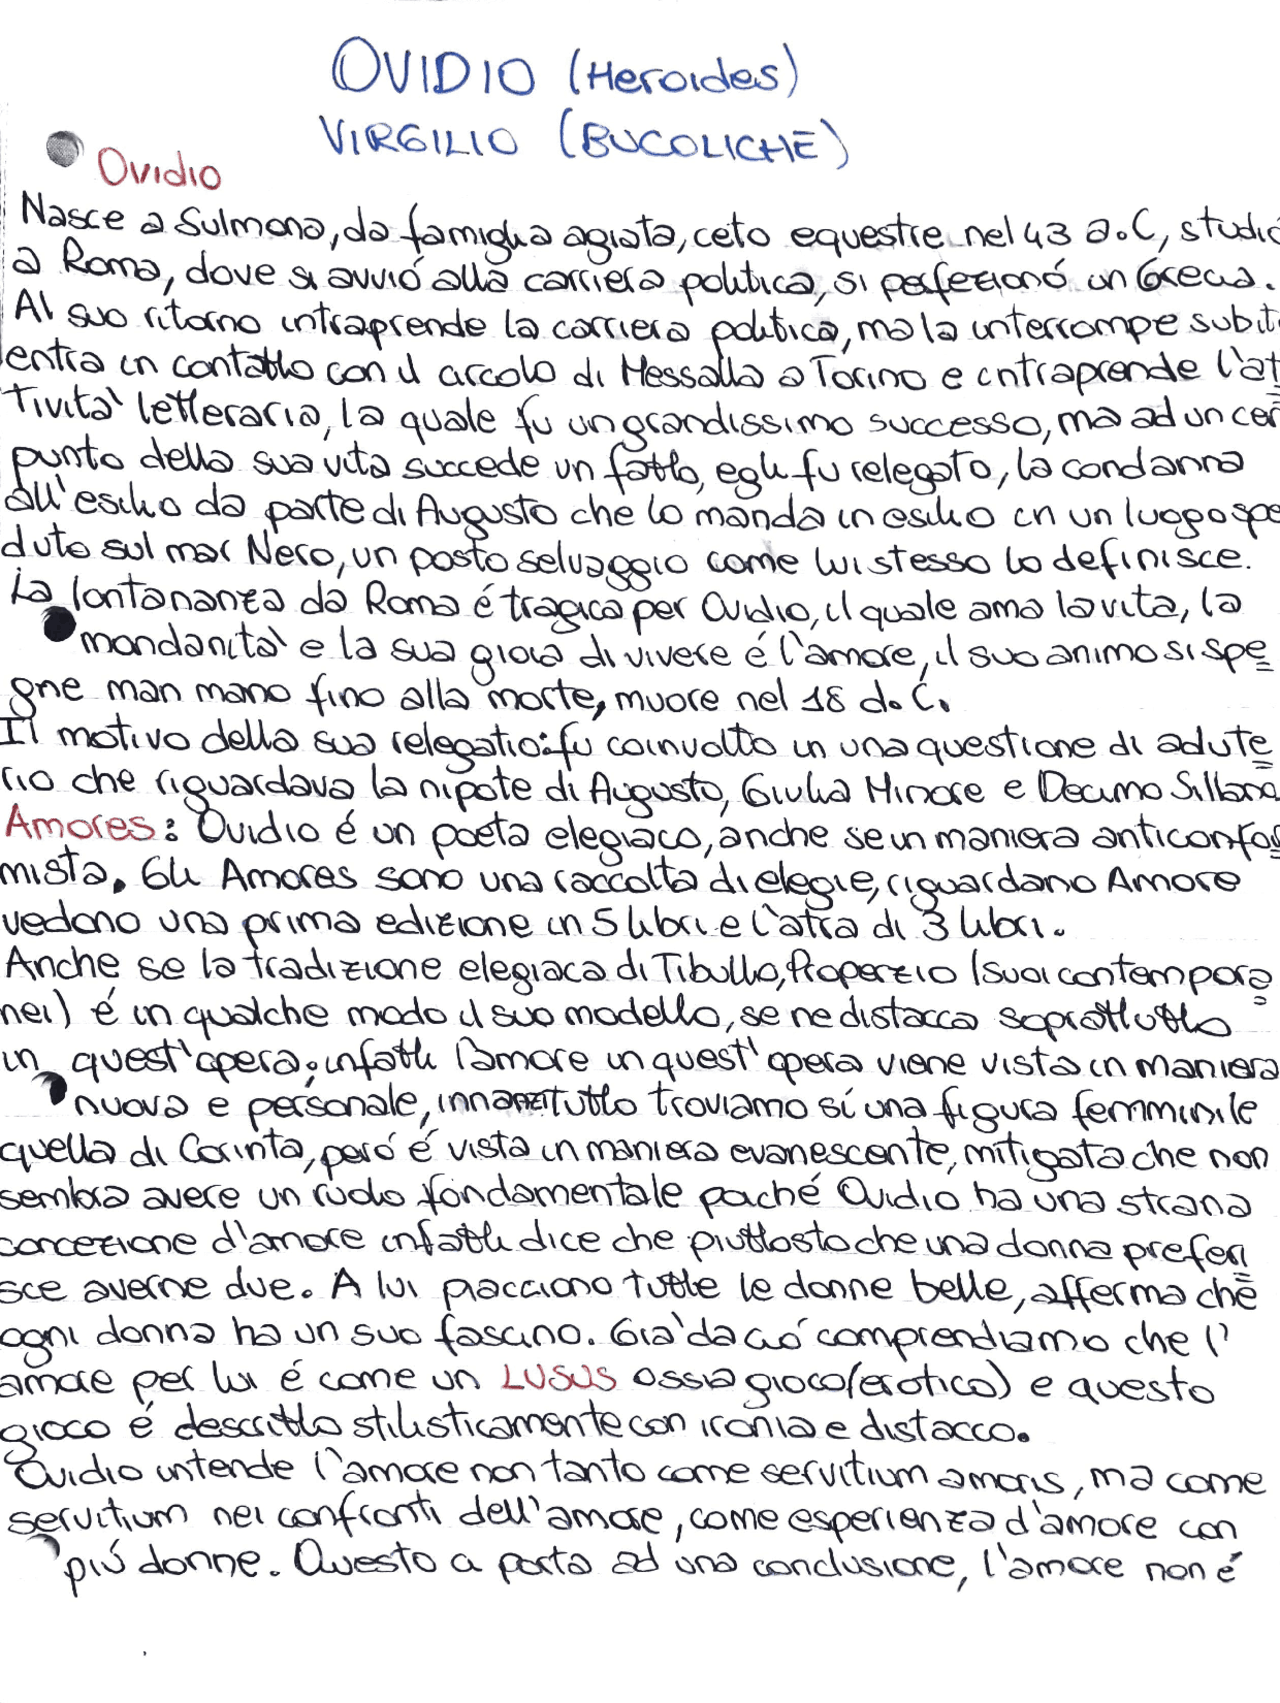 OVIDIO (Heroides)
VIRGILIO (BUCOLICHE)
Ovidio
Nasce a Sulmona, da famiglia agiata, ceto equestre nel 43 a.C, studiò
a Roma, dove si avviò alla carriera politica, si perfezionó in Grecia.
Al suo ritorno intraprende la carriera politica, ma la interrompe subit
entra in contatto con il circolo di Messalla a Torino e intraprende l'at
tività letteraria, la quale fu un grandissimo successo, ma ad un cer
punto della sua vita succede un fatto, egli fu relegato, la condanna
all'esilio da parte di Augusto che lo manda in esilio in un luogo spe
duto sul mar Nero, un posto selvaggio come lui stesso lo definisce.
La lontananza da Roma é tragica per Ovidio, il quale ama la vita, la
mondanità e la sua gioia di vivere é l'amore, il suo animo si spe
gne man mano fino alla morte, muore nel 18 d.C.
Il motivo della sua relegatio: fu coinvolto in una questione di adute
rio che riguardava la nipote di Augusto, Giulia Minore e Decimo Sillano
Amores: Ovidio é un poeta elegiaco, anche se in maniera anticonfor
mista. Gli Amores sono una raccolta di elegie, riguardano Amore
vedono una prima edizione in 5 libri e l'atra di 3 libri.
Anche se la tradizione elegiaca di Tibullo, Properzio (suoi contempora
nei) é in qualche modo il suo modello, se ne distacca soprattutto
in quest'opera; infatti l'amore in quest'opera viene vista in maniera
nuova e personale, innanzitutto troviamo sí una figura femminile
quella di Corinta, peró é vista in maniera evanescente, mitigata che non
sembra avere un ruolo fondamentale poiché Ovidio ha una strana
concezione d'amore infatti dice che piuttosto che una donna preferi
sce averne due. A lui piacciono tutte le donne belle, afferma che
ogni donna ha un suo fascino. Gia' da ció comprendiamo che l'
amore per lui é come un LUSUS ossia gioco (erotico) e questo
gioco é descritto stilisticamente con ironia e distacco.
Ovidio intende l'amore non tanto come servitium amoris, ma come
servitium nei confronti dell'amore, come esperienza d'amore con
piú donne. Questo ci porta ad una conclusione, l'amore non é